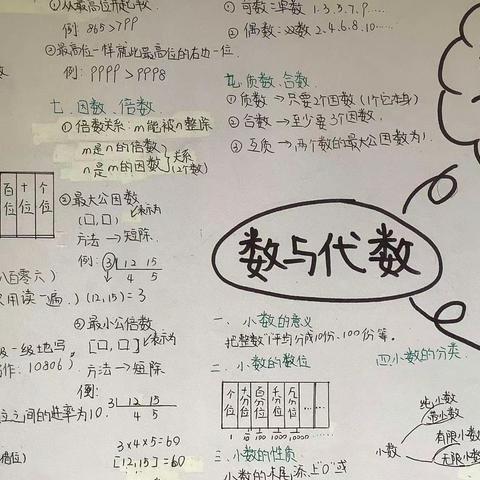 ①从最高位开始比较.
例: 865>799
②最高位一样就比最高位的右边一位.
例: 9999>9998
七、因数、倍数
①倍数关系: m能被n整除
m是n的倍数
n是m的因数
关系
(2个数)
百位
十位
个位
②最大公因数
(□,□)
表示为
方法→短除.
例: 3 12 15
4 5
(12,15)=3
③最小公倍数
[□,□]
表示为
方法→短除
例: 3 12 15
4 5
3×4×5=60
[12,15]=60
八百零六)
只用读一遍.)
级一级地写,
作: 10806)
位之间的进率为10.
①奇数:单数 1.3.5.7.9....
②偶数:双数 2.4.6.8.10.....
九、质数、合数
①质数→只要2个因数(1个它本身)
②合数→至少要3个因数.
③互质→两个数的最大公因数为1.
数与代数
一、小数的意义
把整数"1"平均分成10份、100份等.
二、小数的数位
个位
十分位
百分位
千分位
万分位
......
1 1/10 1/100 1/1000 1/10000
三、小数的性质
小数的末尾添上"0"或
四、小数的分类
小数
纯小数
带小数
有限小数
无限小数